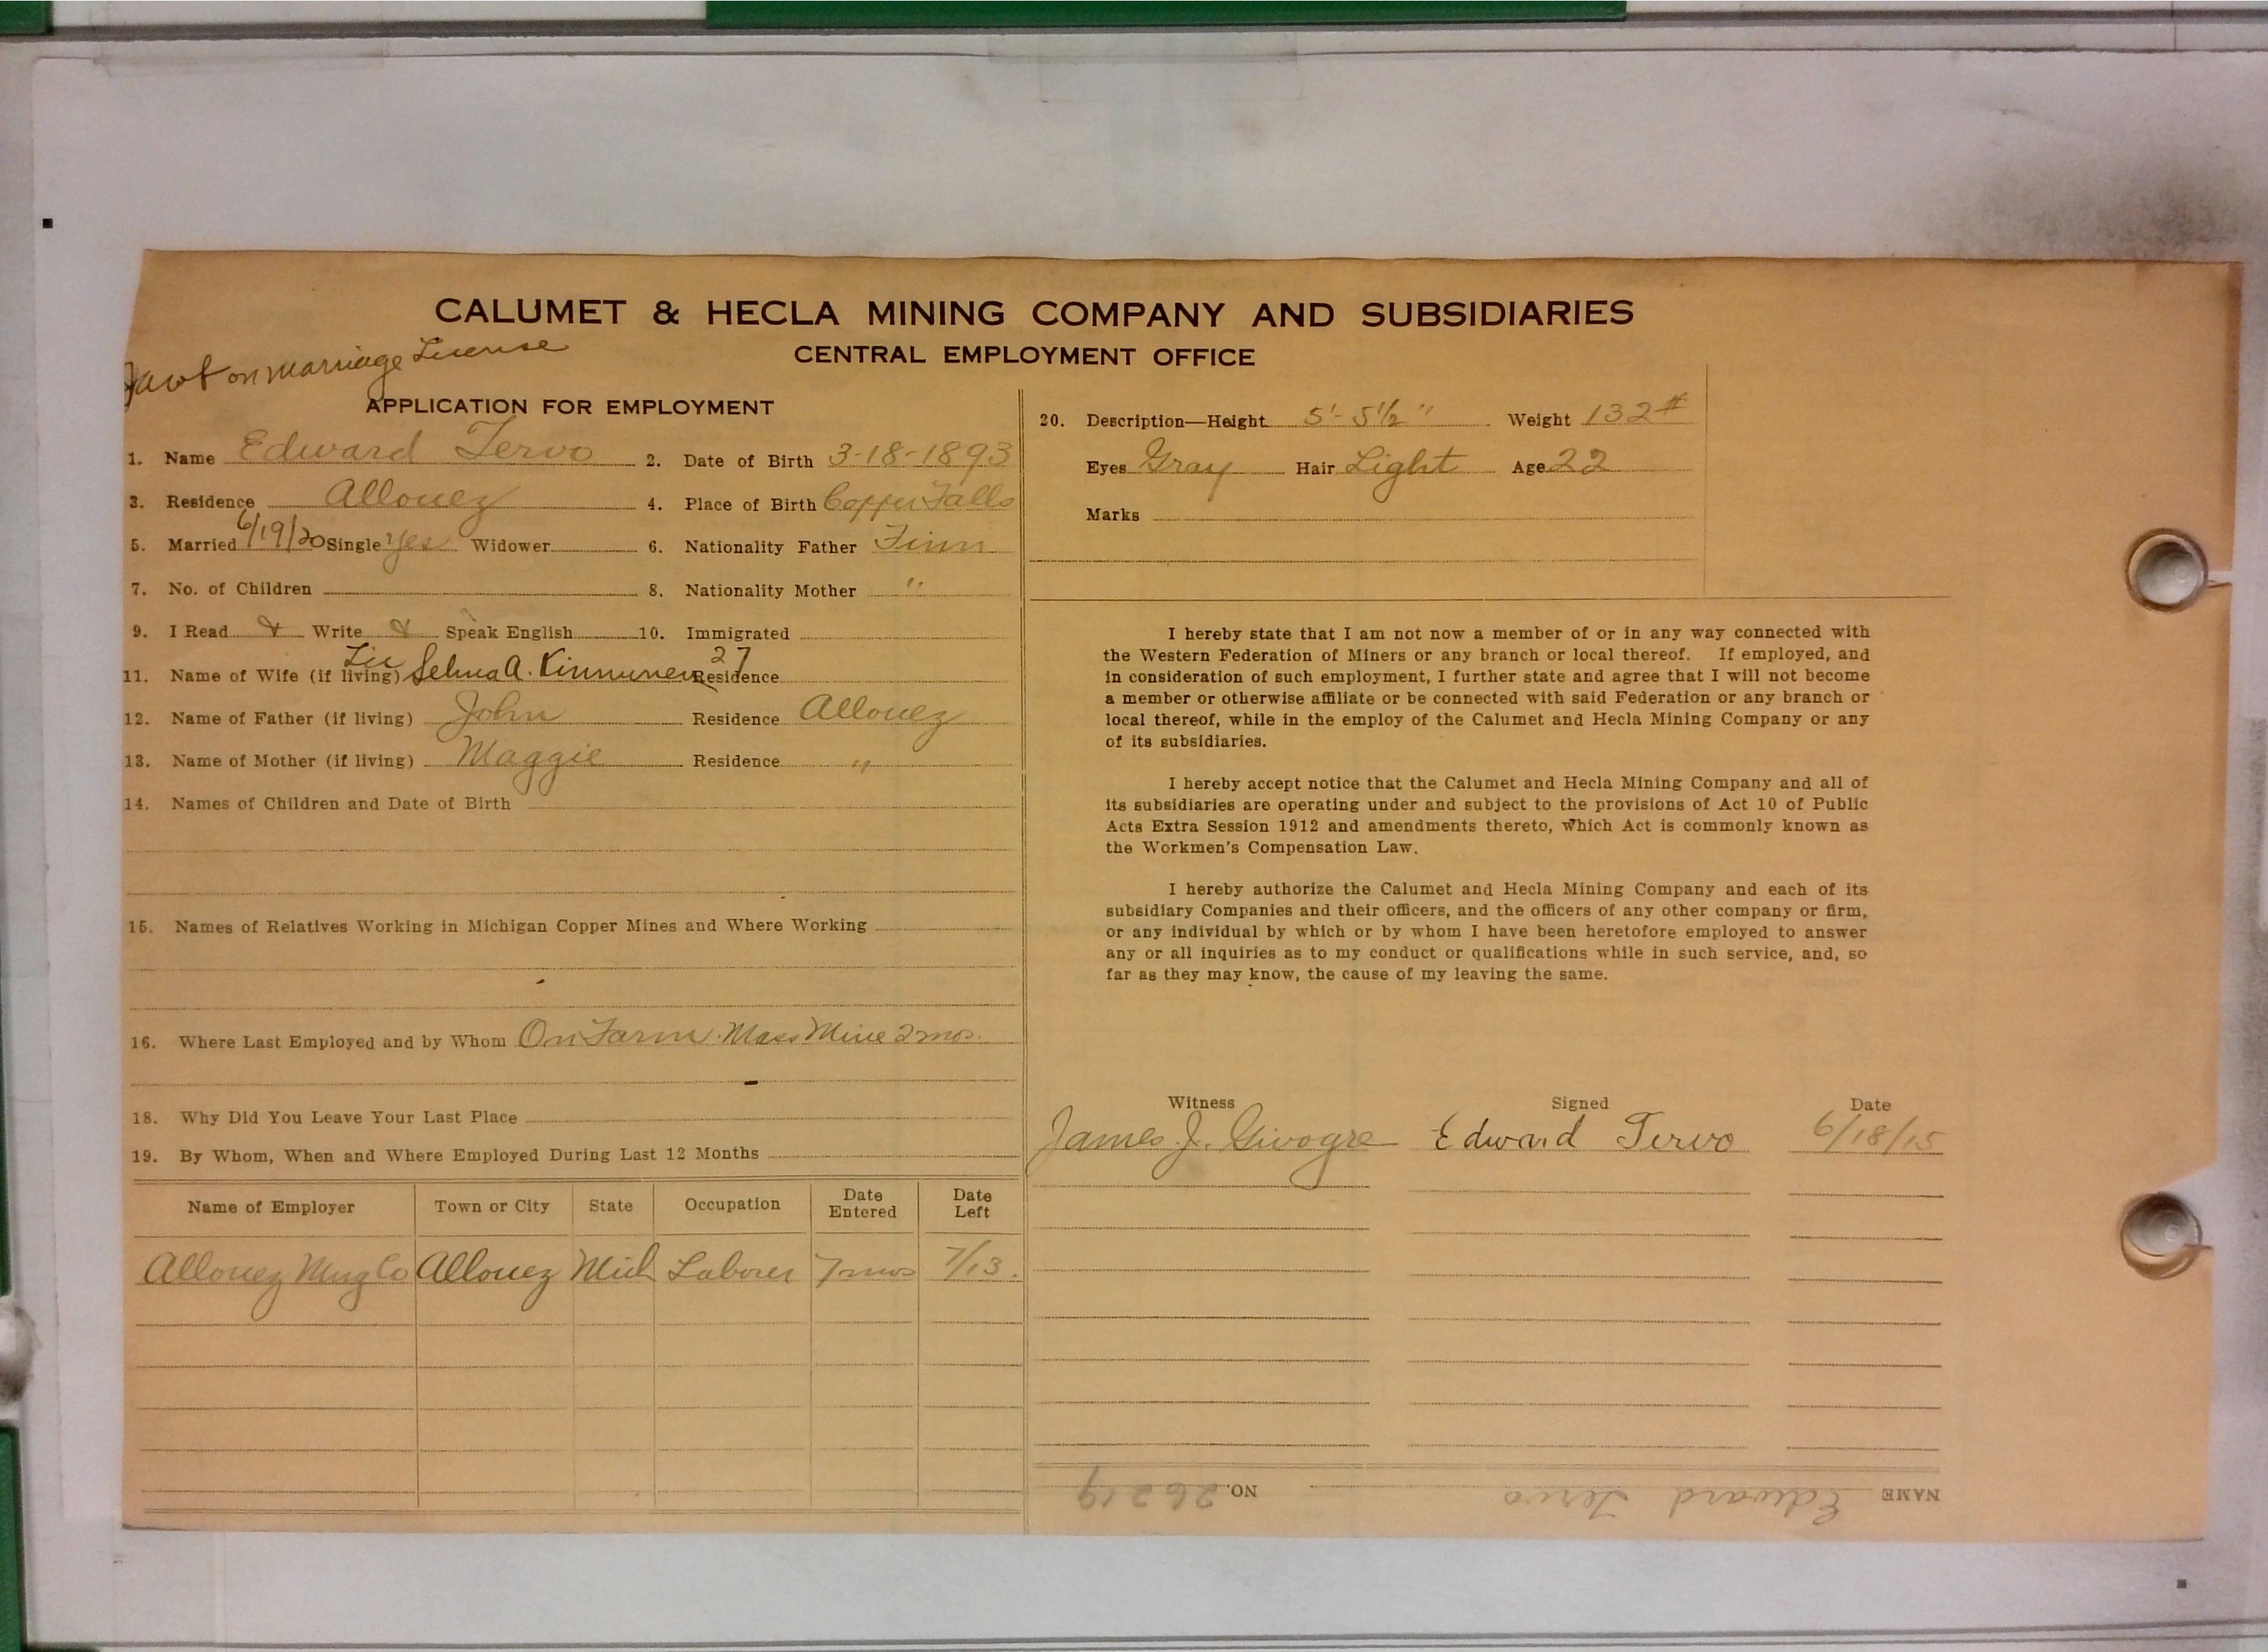 CALUMET & HECLA MINING COMPANY AND SUBSIDIARIES
CENTRAL EMPLOYMENT OFFICE
on marriage License
APPLICATION FOR EMPLOYMENT
1. Name Edward Tervo 2. Date of Birth 3-18-1893
3. Residence Allouez 4. Place of Birth Copper Falls
5. Married 6/19/20 Single Yes Widower 6. Nationality Father Finn
7. No. of Children 8. Nationality Mother "
9. I Read & Write & Speak English 10. Immigrated
11. Name of Wife (if living) Selma A. Kinnunen 27 Residence
12. Name of Father (if living) John Residence Allouez
13. Name of Mother (if living) Maggie Residence "
14. Names of Children and Date of Birth
15. Names of Relatives Working in Michigan Copper Mines and Where Working
16. Where Last Employed and by Whom On Farm. Mass Mine 2 mos.
18. Why Did You Leave Your Last Place
19. By Whom, When and Where Employed During Last 12 Months
Name of Employer Town or City State Occupation Date Entered Date Left
Allouez Mng Co Allouez Mich Laborer 7 mos 7/13.
20. Description—Height 5'-5½" Weight 132#
Eyes Gray Hair Light Age 22
Marks
I hereby state that I am not now a member of or in any way connected with
the Western Federation of Miners or any branch or local thereof. If employed, and
in consideration of such employment, I further state and agree that I will not become
a member or otherwise affiliate or be connected with said Federation or any branch or
local thereof, while in the employ of the Calumet and Hecla Mining Company or any
of its subsidiaries.
I hereby accept notice that the Calumet and Hecla Mining Company and all of
its subsidiaries are operating under and subject to the provisions of Act 10 of Public
Acts Extra Session 1912 and amendments thereto, which Act is commonly known as
the Workmen's Compensation Law.
I hereby authorize the Calumet and Hecla Mining Company and each of its
subsidiary Companies and their officers, and the officers of any other company or firm,
or any individual by which or by whom I have been heretofore employed to answer
any or all inquiries as to my conduct or qualifications while in such service, and, so
far as they may know, the cause of my leaving the same.
Witness Signed Date
James J. Edward Tervo 6/18/15
NAME Edward Tervo NO. 26219